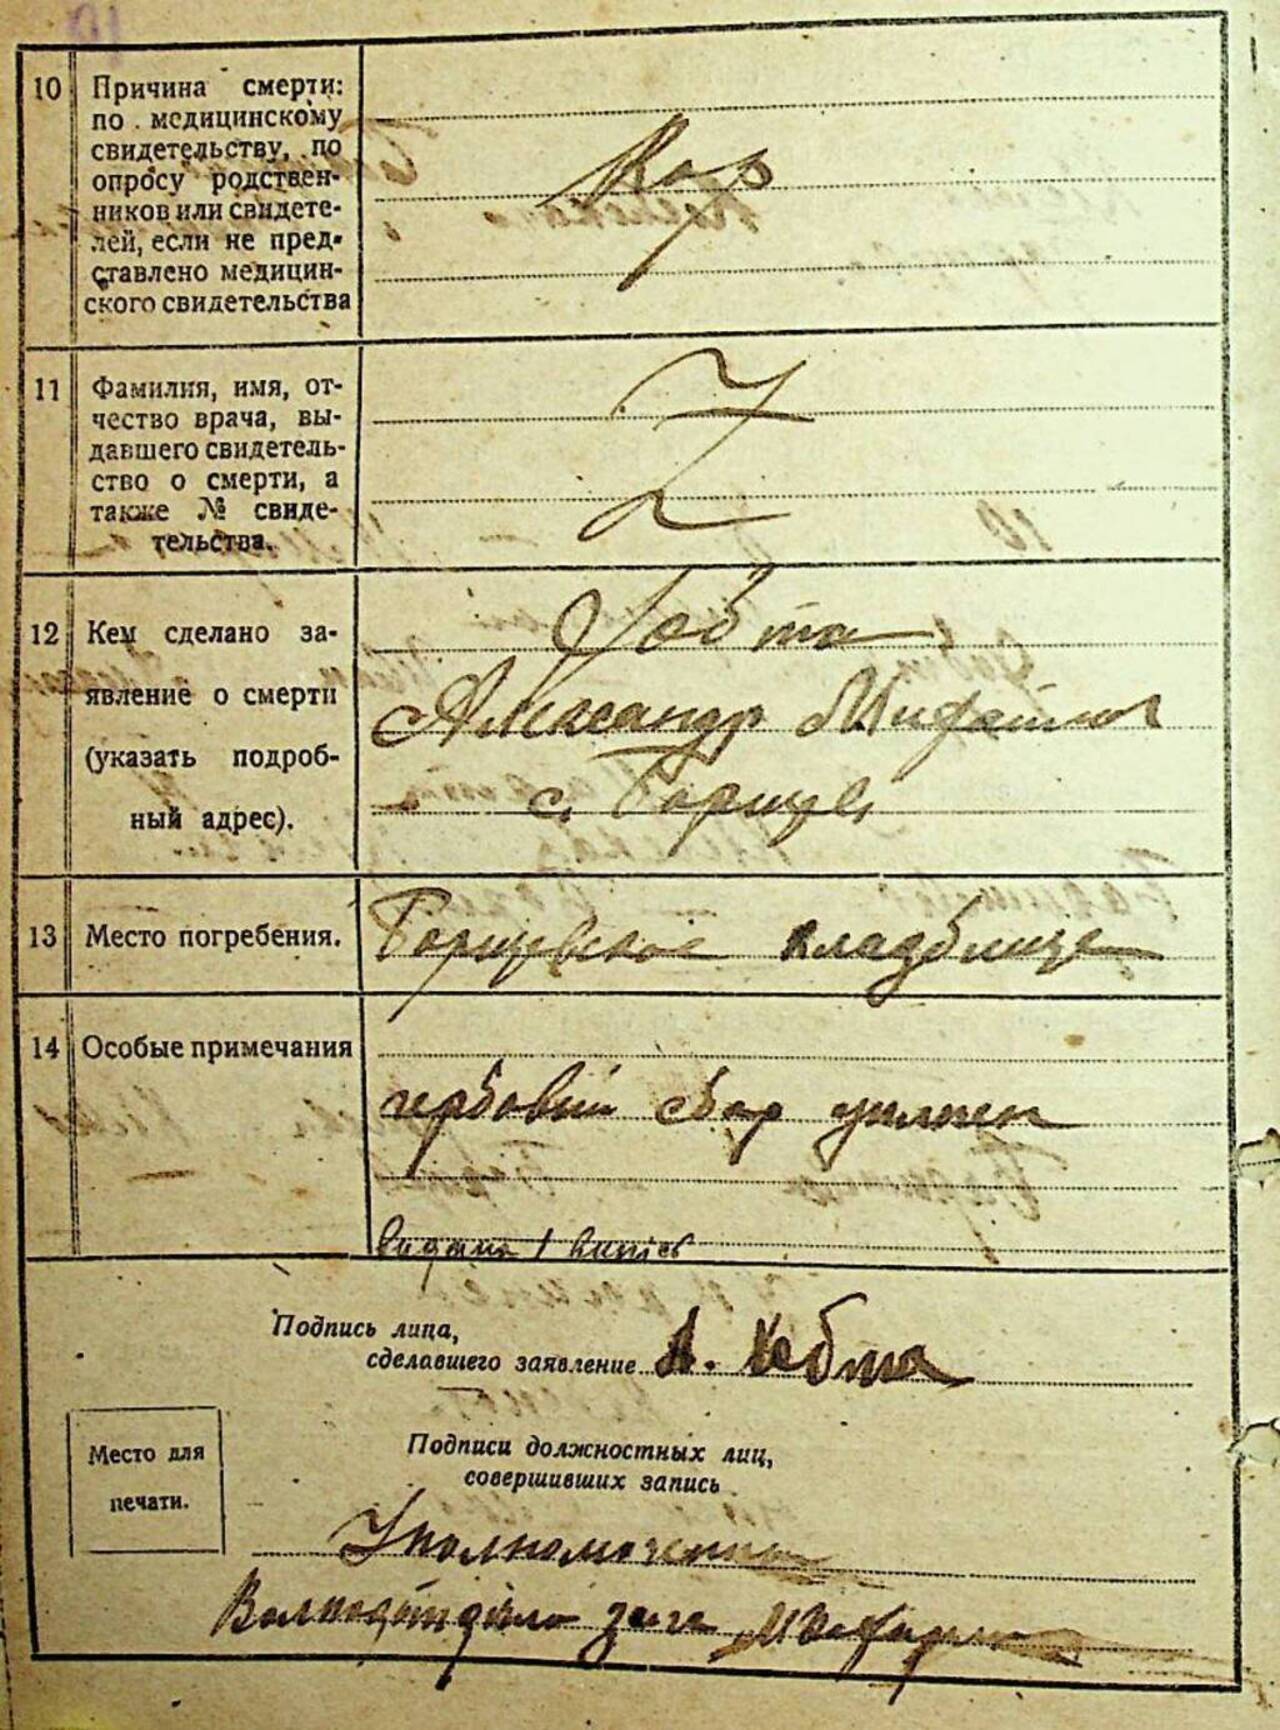 10 Причина смерти:
по медицинскому
свидетельству, по
опросу родствен-
ников или свидете-
лей, если не пред-
ставлено медицин-
ского свидетельства
Кор
11 Фамилия, имя, от-
чество врача, вы-
давшего свидетель-
ство о смерти, а
также № свиде-
тельства.
12 Кем сделано за-
явление о смерти
(указать подроб-
ный адрес).
Александр
с. Борщев
13 Место погребения.
Борщевское кладбище
14 Особые примечания
гербовый сбор
Подпись лица,
сделавшего заявление
А.
Место для
печати.
Подписи должностных лиц,
совершивших запись